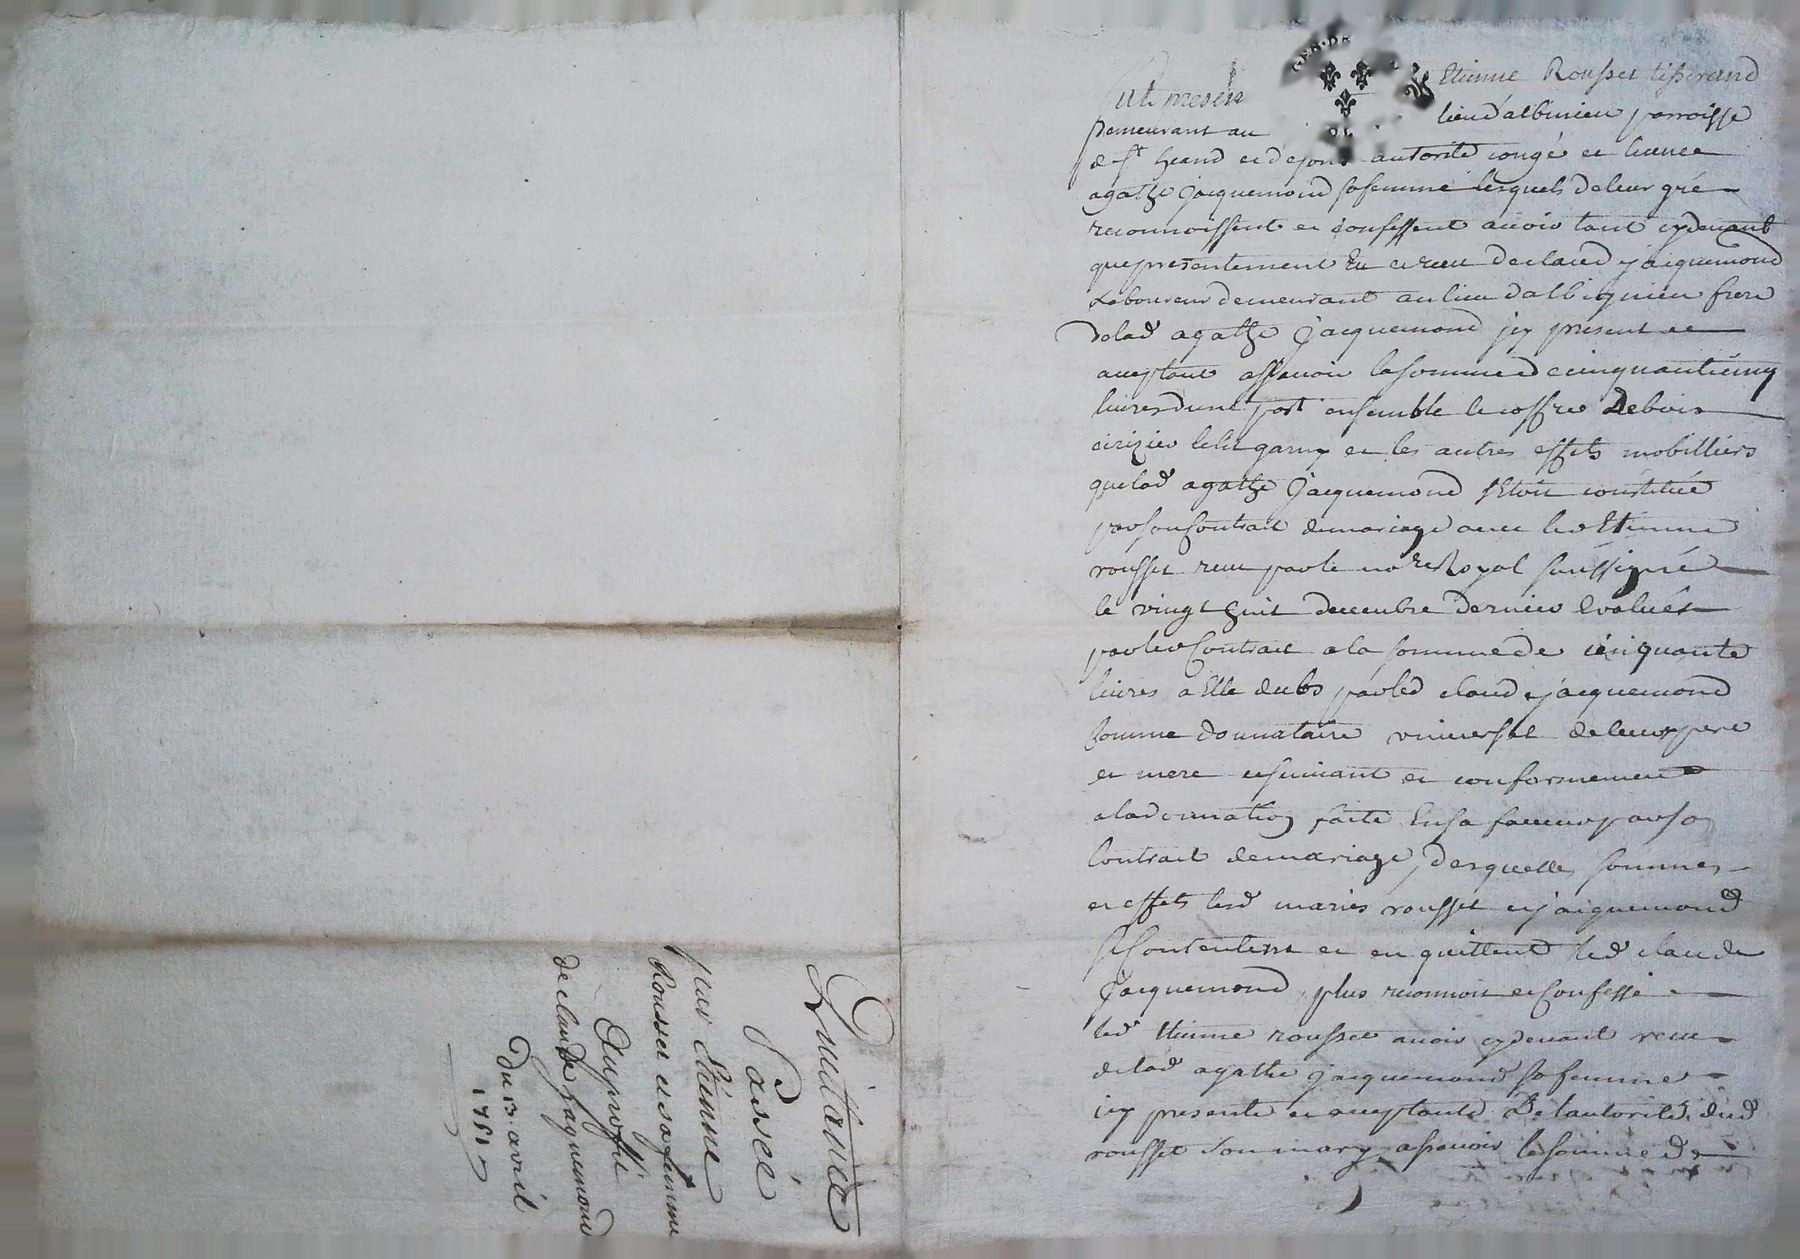 Quittance
Passée
par Etienne
Rousset et sa femme
Au proffit
de claude jaquemond
Du 13 avril
1751
furent presens Etienne Rousset tisserand
Demeurant au lieu d'albinieu parroisse
de st heand et de son autorité congé et licence
agathe jacquemond sa femme lesquels de leur gré
reconnoissent et confessent avoir tant cydevant
que presentement Eu et receu de claud jacquemond
Laboureur demeurant au lieu dalbignieu frere
de lad agathe jacquemond jcy present et
acceptant assavoir la somme de cinquante cinq
livres dune part ensemble le coffre de bois
cirizier le lit garny et les autres effets mobilliers
que lad agathe jacquemond s'Etoit constitué
par son Contract de mariage avec led Etienne
rousset receu par le nore Royal soussigné
le vingt huit decembre dernier Evalués
par led Contract a la somme de cinquante
livres a Elle dubs par led claud jacquemond
comme donnataire universel de leurs pere
et mere et suivant et conformement
a la donnation faite En sa faveur par son
Contract de mariage, desquelles sommes
et effets lesd mariés rousset et jacquemond
se Contentent et en quittent led claude
jacquemond plus reconnoit et Confesse
led Etienne rousset avoir cydevant receu
de lad agathe jacquemond sa femme
icy presente et acceptante De lautorité dud
rousset son mary assavoir la somme de